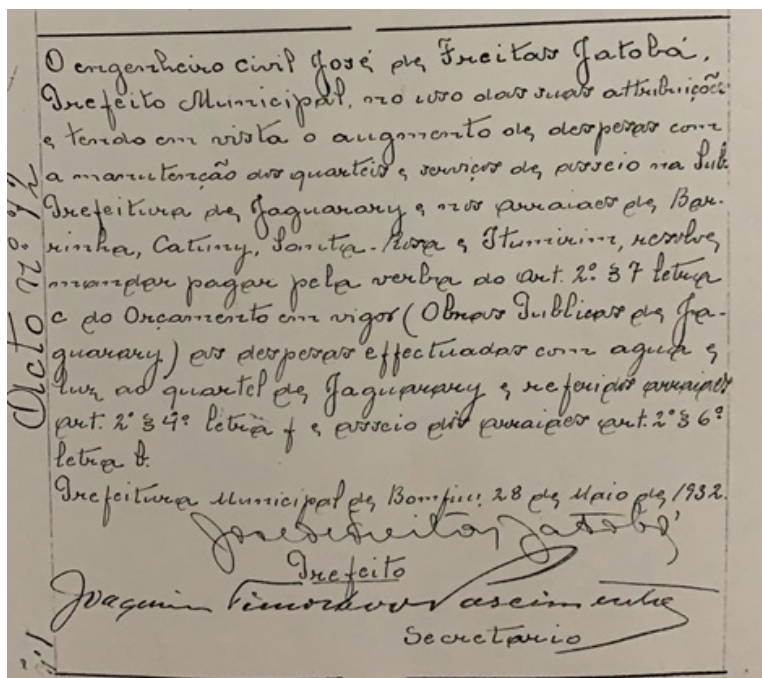 O engenheiro civil José de Freitas Jatobá,
Prefeito Municipal, no uso das suas attribuições
e tendo em vista o augmento de despesas com
a manutenção dos quarteis e serviços de asseio na Sub-
Prefeitura de Jaguarary e nos arraiaes de Bar-
rinha, Catuny, Santa-Rosa e Itumirim, resolve
mandar pagar pela verba do art. 2º § 7 letra
c do Orçamento em vigor (Obras Publicas de Ja-
guarary) as despesas effectuadas com agua e
luz ao quartel de Jaguarary e referidos arraiaes
art. 2º § 4º letra f e asseio dos arraiaes art. 2º § 6º
letra b.
Prefeitura Municipal de Bomfim, 28 de Maio de 1932.
José de Freitas Jatobá
Prefeito
Joaquim Timotheo Nascimento
Secretario
Acto nº 12